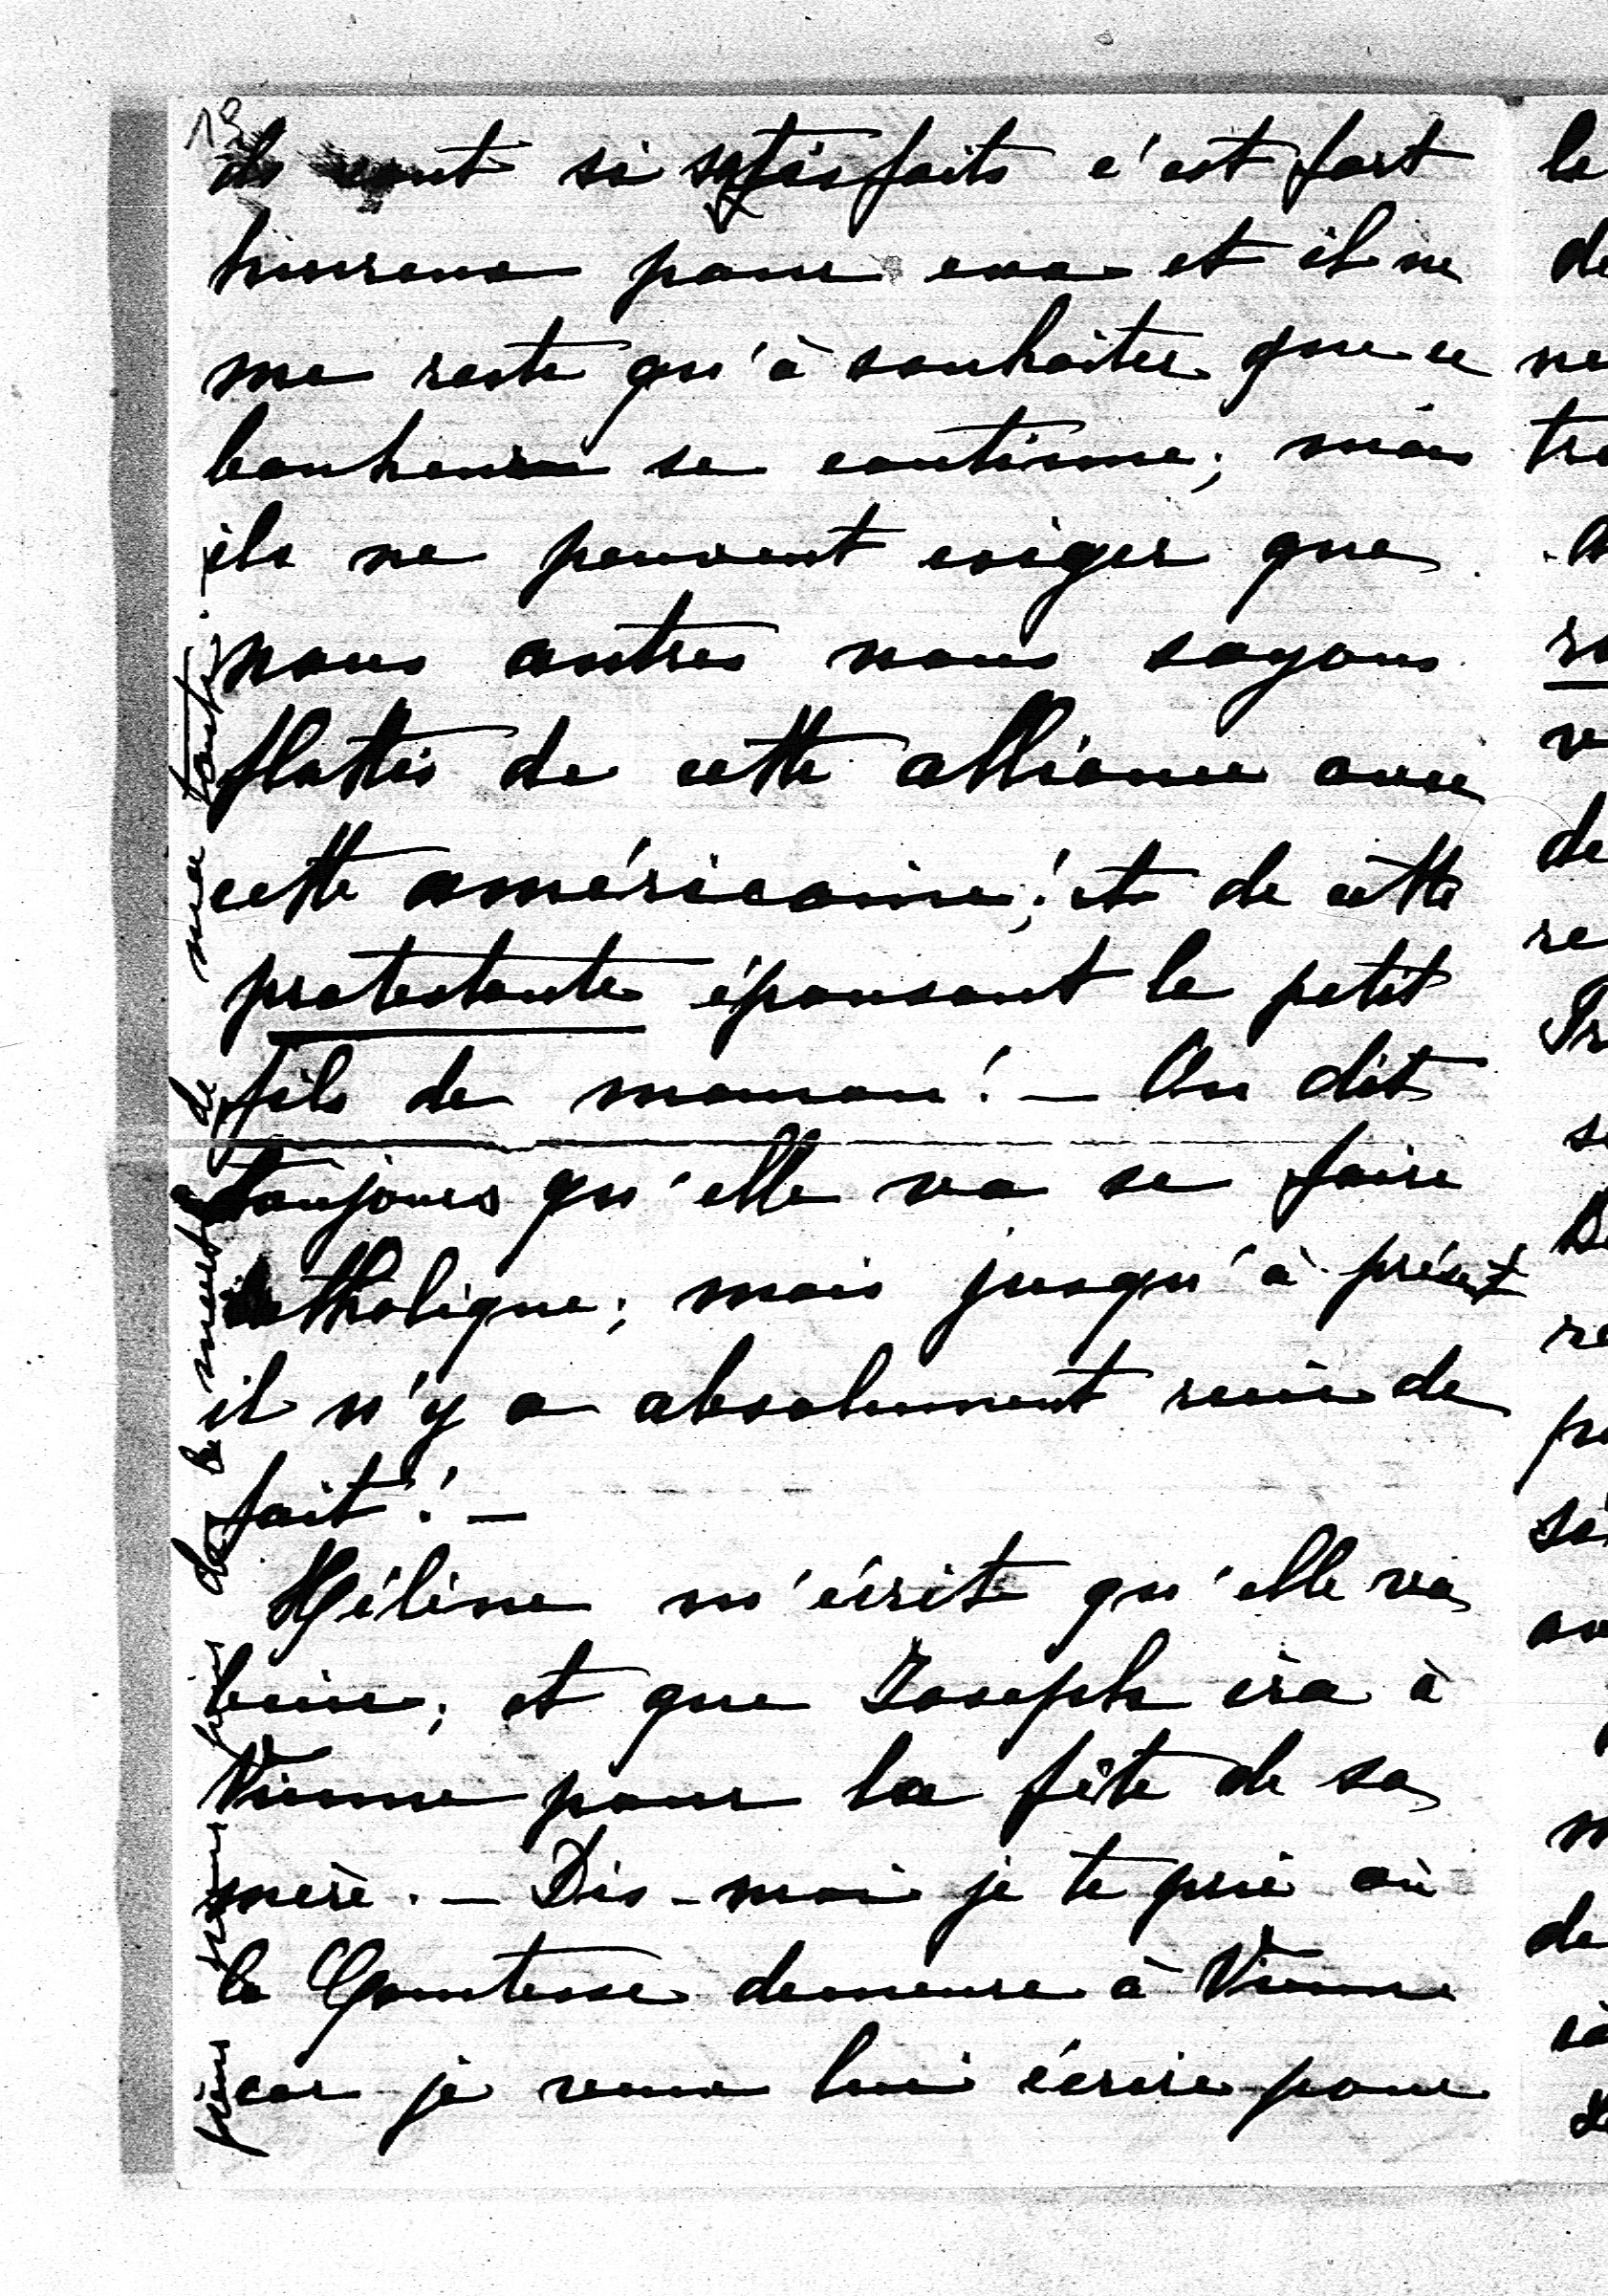 13
ils sont si satisfaits c'est fort
heureux pour eux et il ne
me reste qu'à souhaiter que ce
bonheur se continue; mais
ils ne peuvent exiger que
nous autres nous soyons
flattés de cette alliance avec
cette américaine! et de cette
protestante épousant le petit
fils de maman! — On dit
toujours qu'elle va se faire
catholique; mais jusqu'à présent
il n'y a absolument rien de
fait! —
Hélène m'écrit qu'elle va
bien; et que Joseph ira à
Vienne pour la fête de sa
mère. — Dis-moi je te prie où
la Comtesse demeure à Vienne
car je veux lui écrire pour
de la mort de
ma tante.